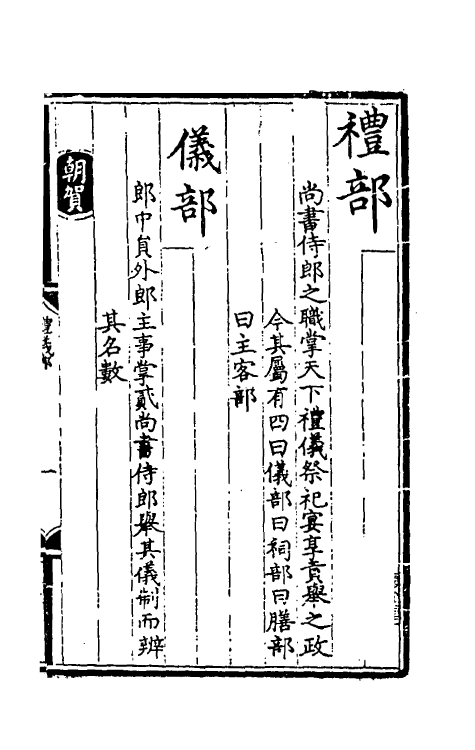 禮部
尚書侍郎之職掌天下禮儀祭祀宴享貢舉之政
令其屬有四曰儀部曰祠部曰膳部
曰主客部
儀部
郎中員外郎主事掌貳尚書侍郎舉其儀制而辨
其名數
朝賀